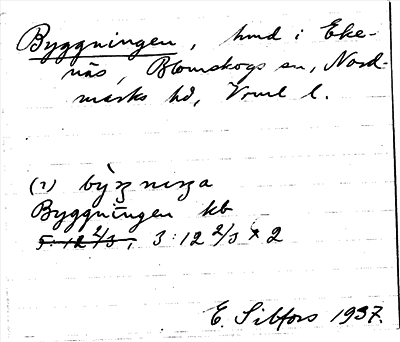 Byggningen, hmd i Eke-
näs, Blomskogs sn, Nord-
marks hd, Vrml l.
(1) 
Byggningen kb
5:12 2/3, 3:12 2/3 x 2
E. Sibfors 1937.